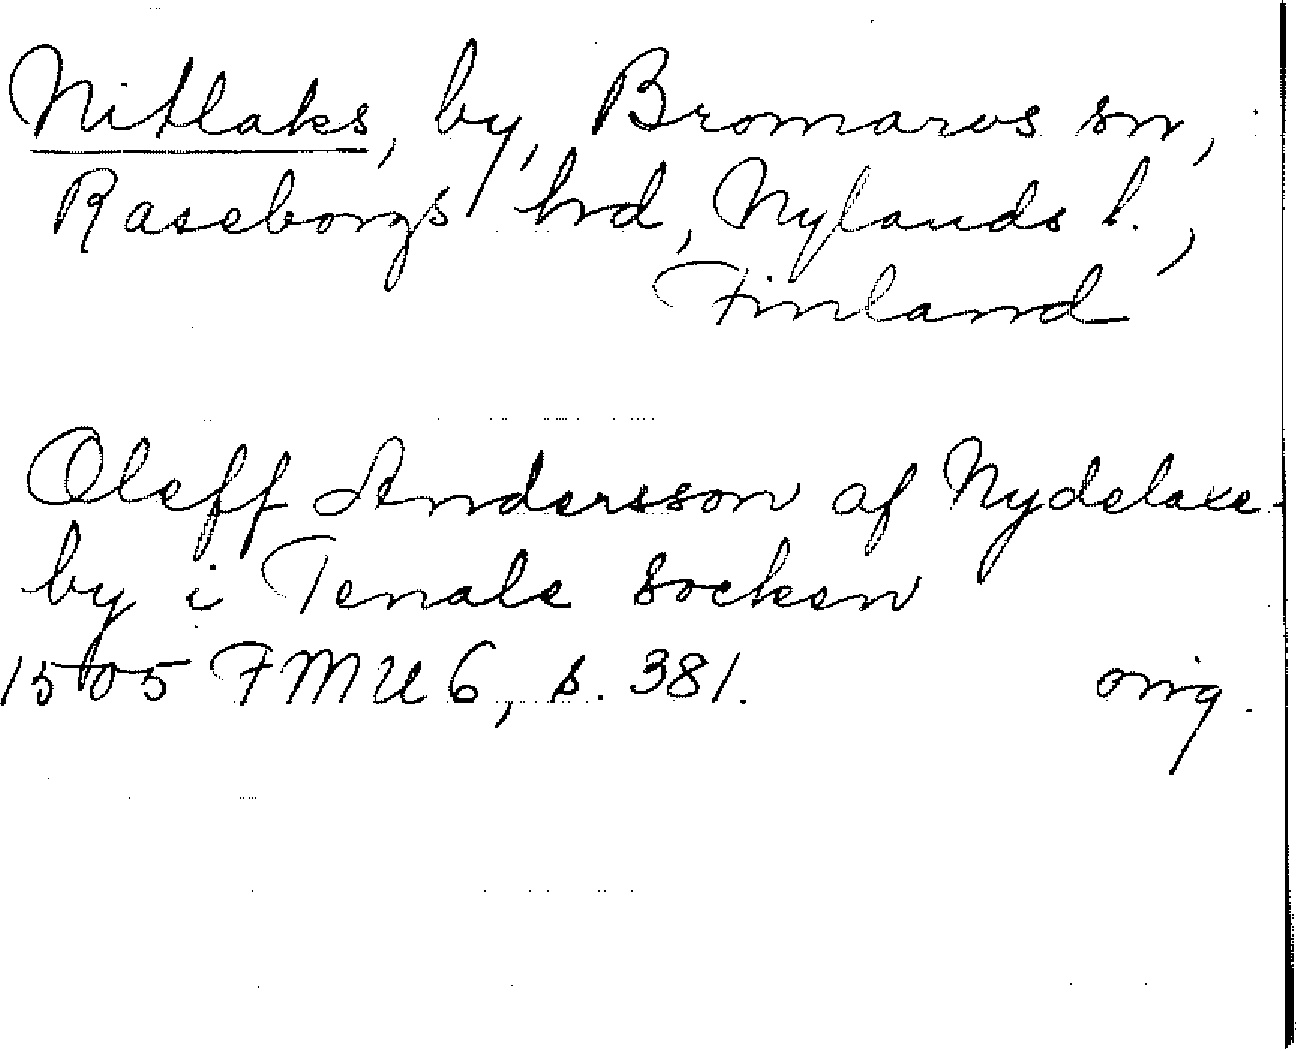 Nitlaks, by, Bromarvs sn,
Raseborgs hrd, Nylands l.,
Finland
Oleff Andersson af Nydelaxe-
by i Tenala socken
1505 FMU 6, s. 381. orig.